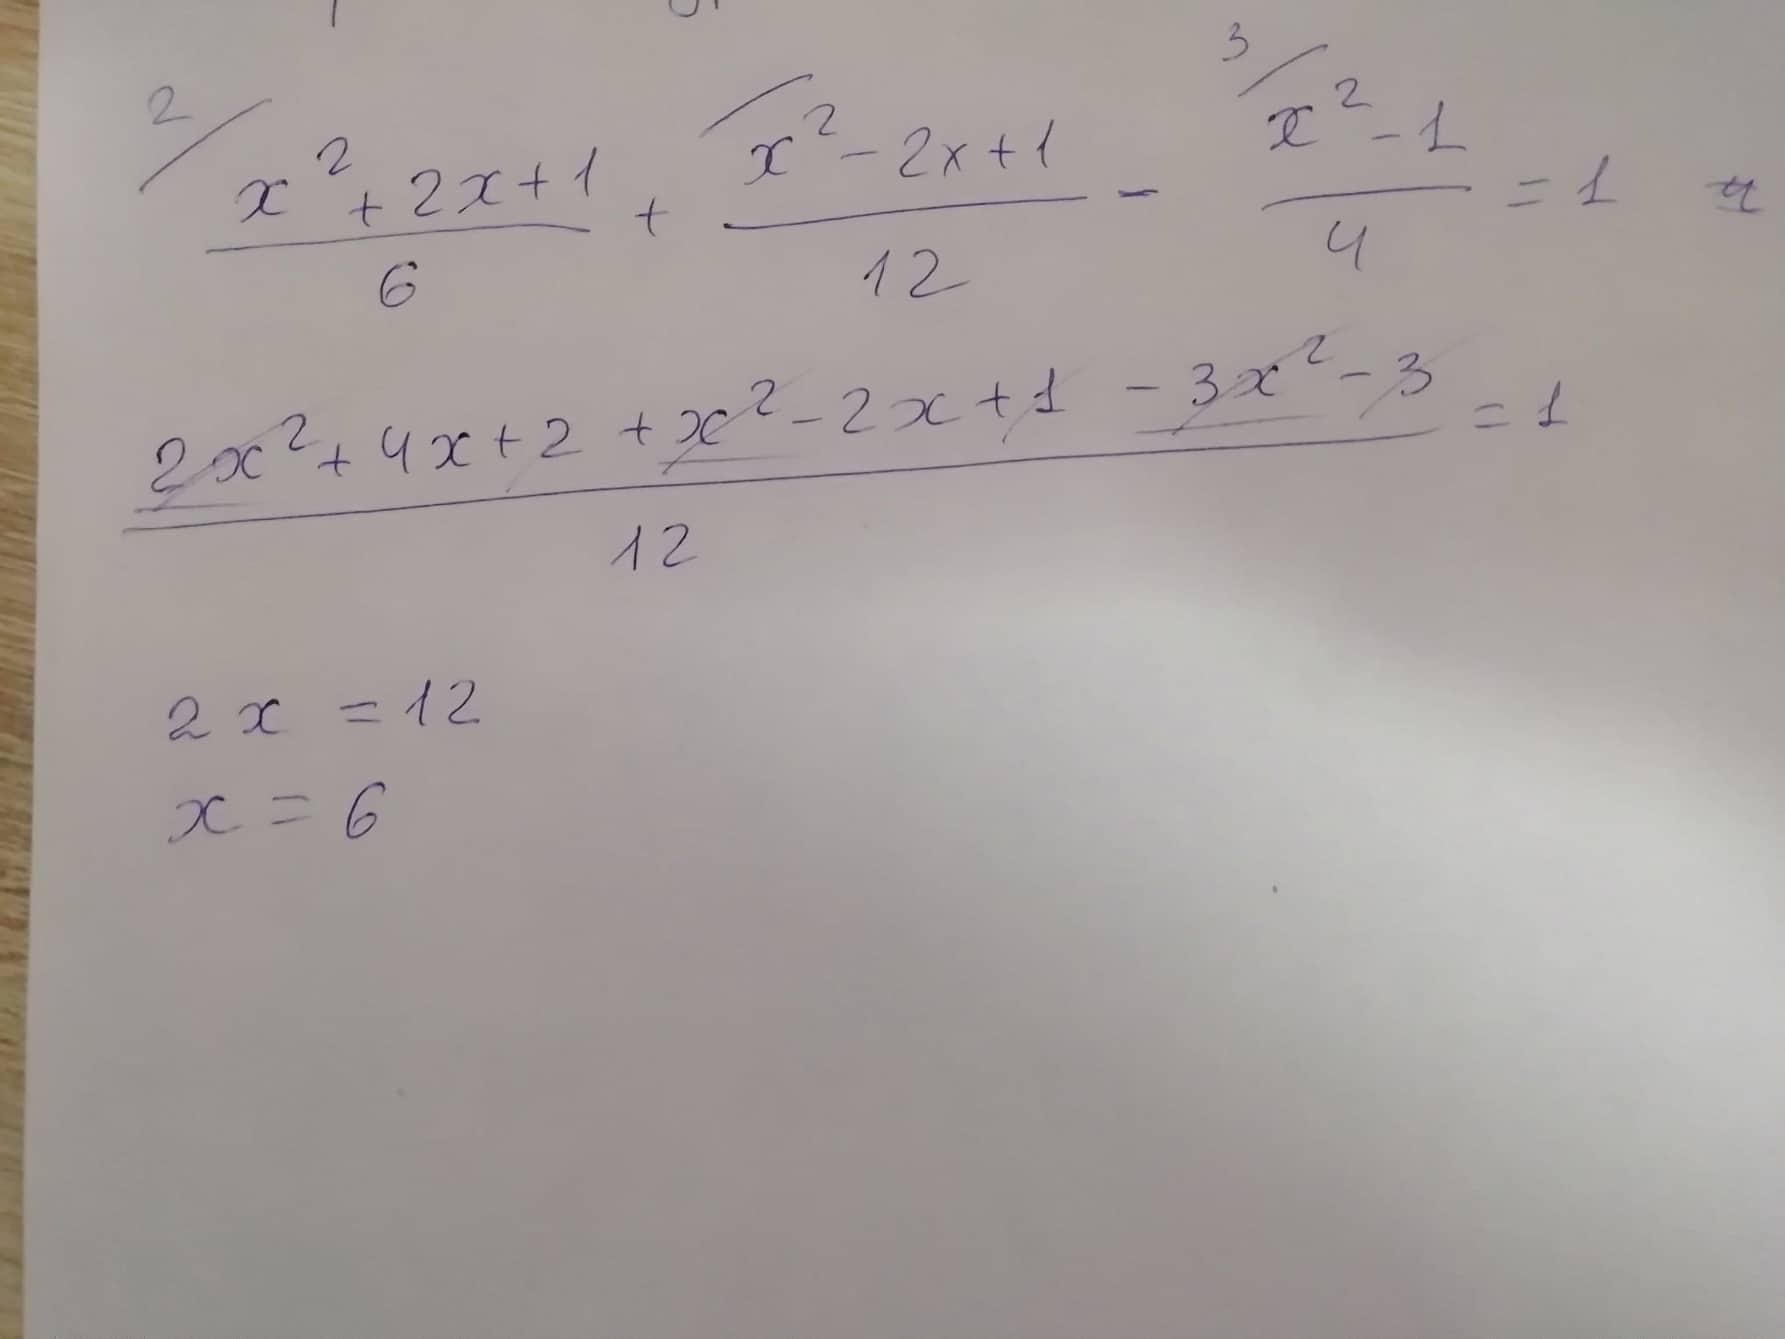 2/ (x² + 2x + 1)/6 + /(x² - 2x + 1)/12 - 3/ (x² - 1)/4 = 1
(2x² + 4x + 2 + x² - 2x + 1 - 3x² - 3)/12 = 1
2x = 12
x = 6